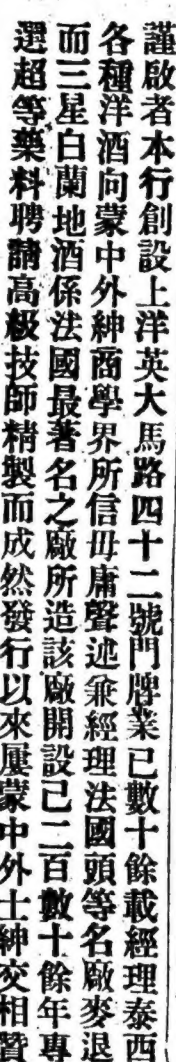 謹啟者本行創設上洋英大馬路四十二號門牌業已數十餘載經理泰西
各種洋酒向蒙中外紳商學界所信毋庸聲述兼經理法國頭等名廠麥退
而三星白蘭地酒係法國最著名之廠所造該廠開設已二百數十餘年專
選超等藥料聘請高級技師精製而成然發行以來屢蒙中外士紳交相贊